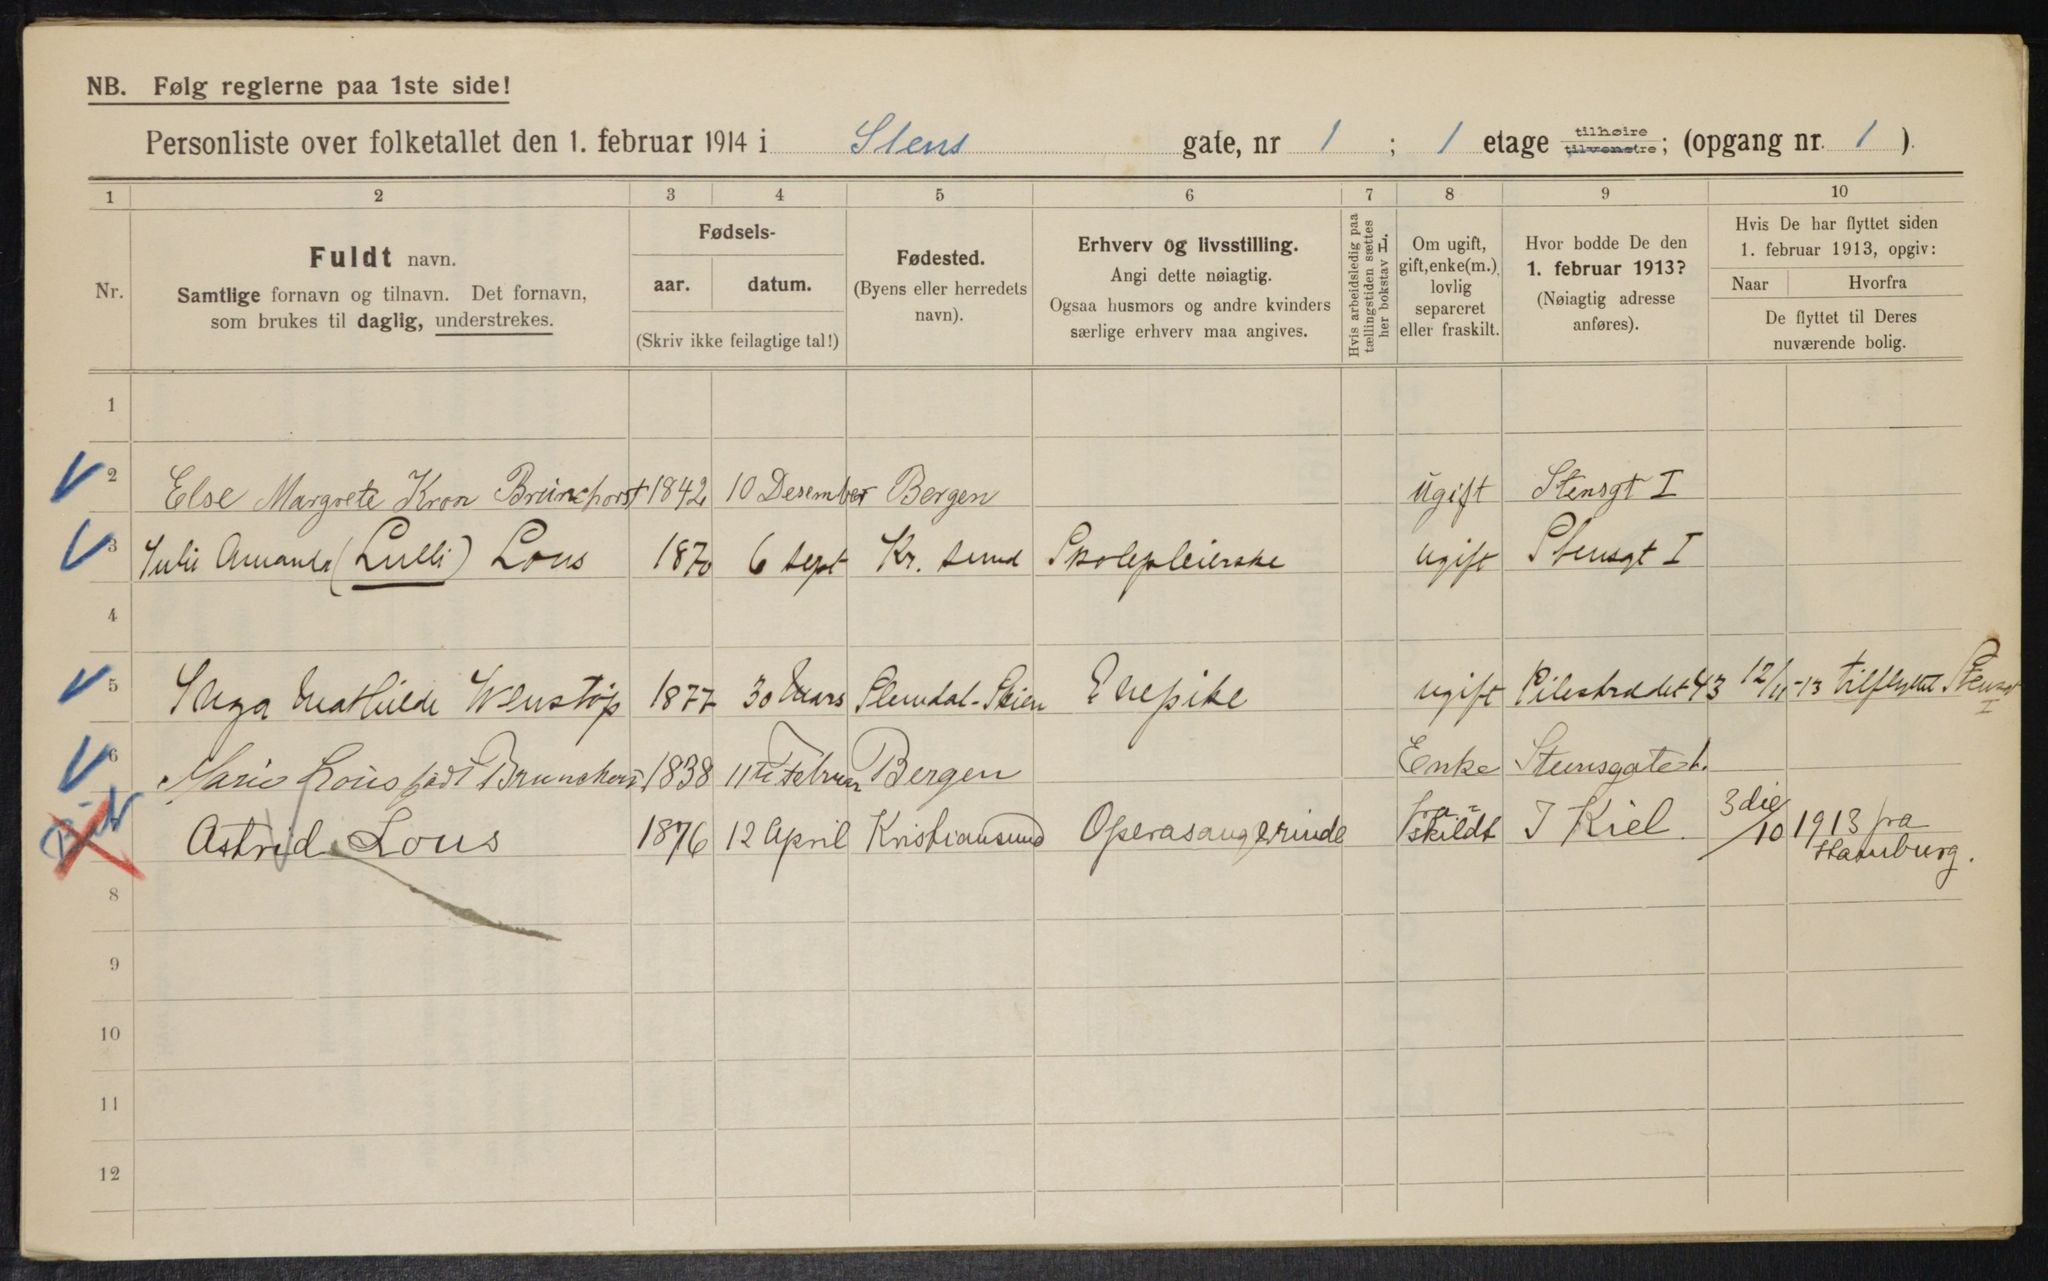 NB. Følg reglerne paa 1ste side!
Personliste over folketallet den 1. februar 1914 i Stens gate, nr 1 ; 1 etage tilhøire tilvenstre; (opgang nr. 1 ).
1 2 3 4 5 6 7 8 9 10
Nr.
Fuldt navn.
Samtlige fornavn og tilnavn. Det fornavn,
som brukes til daglig, understrekes.
Fødsels-
aar. datum.
(Skriv ikke feilagtige tal!)
Fødested.
(Byens eller herredets
navn).
Erhverv og livsstilling.
Angi dette nøiagtig.
Ogsaa husmors og andre kvinders
særlige erhverv maa angives.
Hvis arbeidsledig paa
tællingstiden sættes
her bokstav L.
Om ugift,
gift, enke(m.),
lovlig
separeret
eller fraskilt.
Hvor bodde De den
1. februar 1913?
(Nøiagtig adresse
anføres).
Hvis De har flyttet siden
1. februar 1913, opgiv:
Naar Hvorfra
De flyttet til Deres
nuværende bolig.
1
2 Else Margrete Kron Brunchorst 1842 10 Desember Bergen ugift Stensgt I
3 Julie Amanda (Lulli) Lous 1870 6 sept Kr. sund Skolepleierske ugift Stensgt I
4
5 Inga Mathilde Wenstøp 1877 30 Mars Slemdal-Skien Enepike ugift Pilestrædet 43 12/11-13 tilflyttet Stensgt I
6 Marie Lous født Brunchorst 1838 11te Februar Bergen Enke Stensgate 1.
Astrid Lous 1876 12 April Kristiansund Operasangerinde fraskildt I Kiel. 3die/10 1913 fra
Hamburg.
8
9
10
11
12